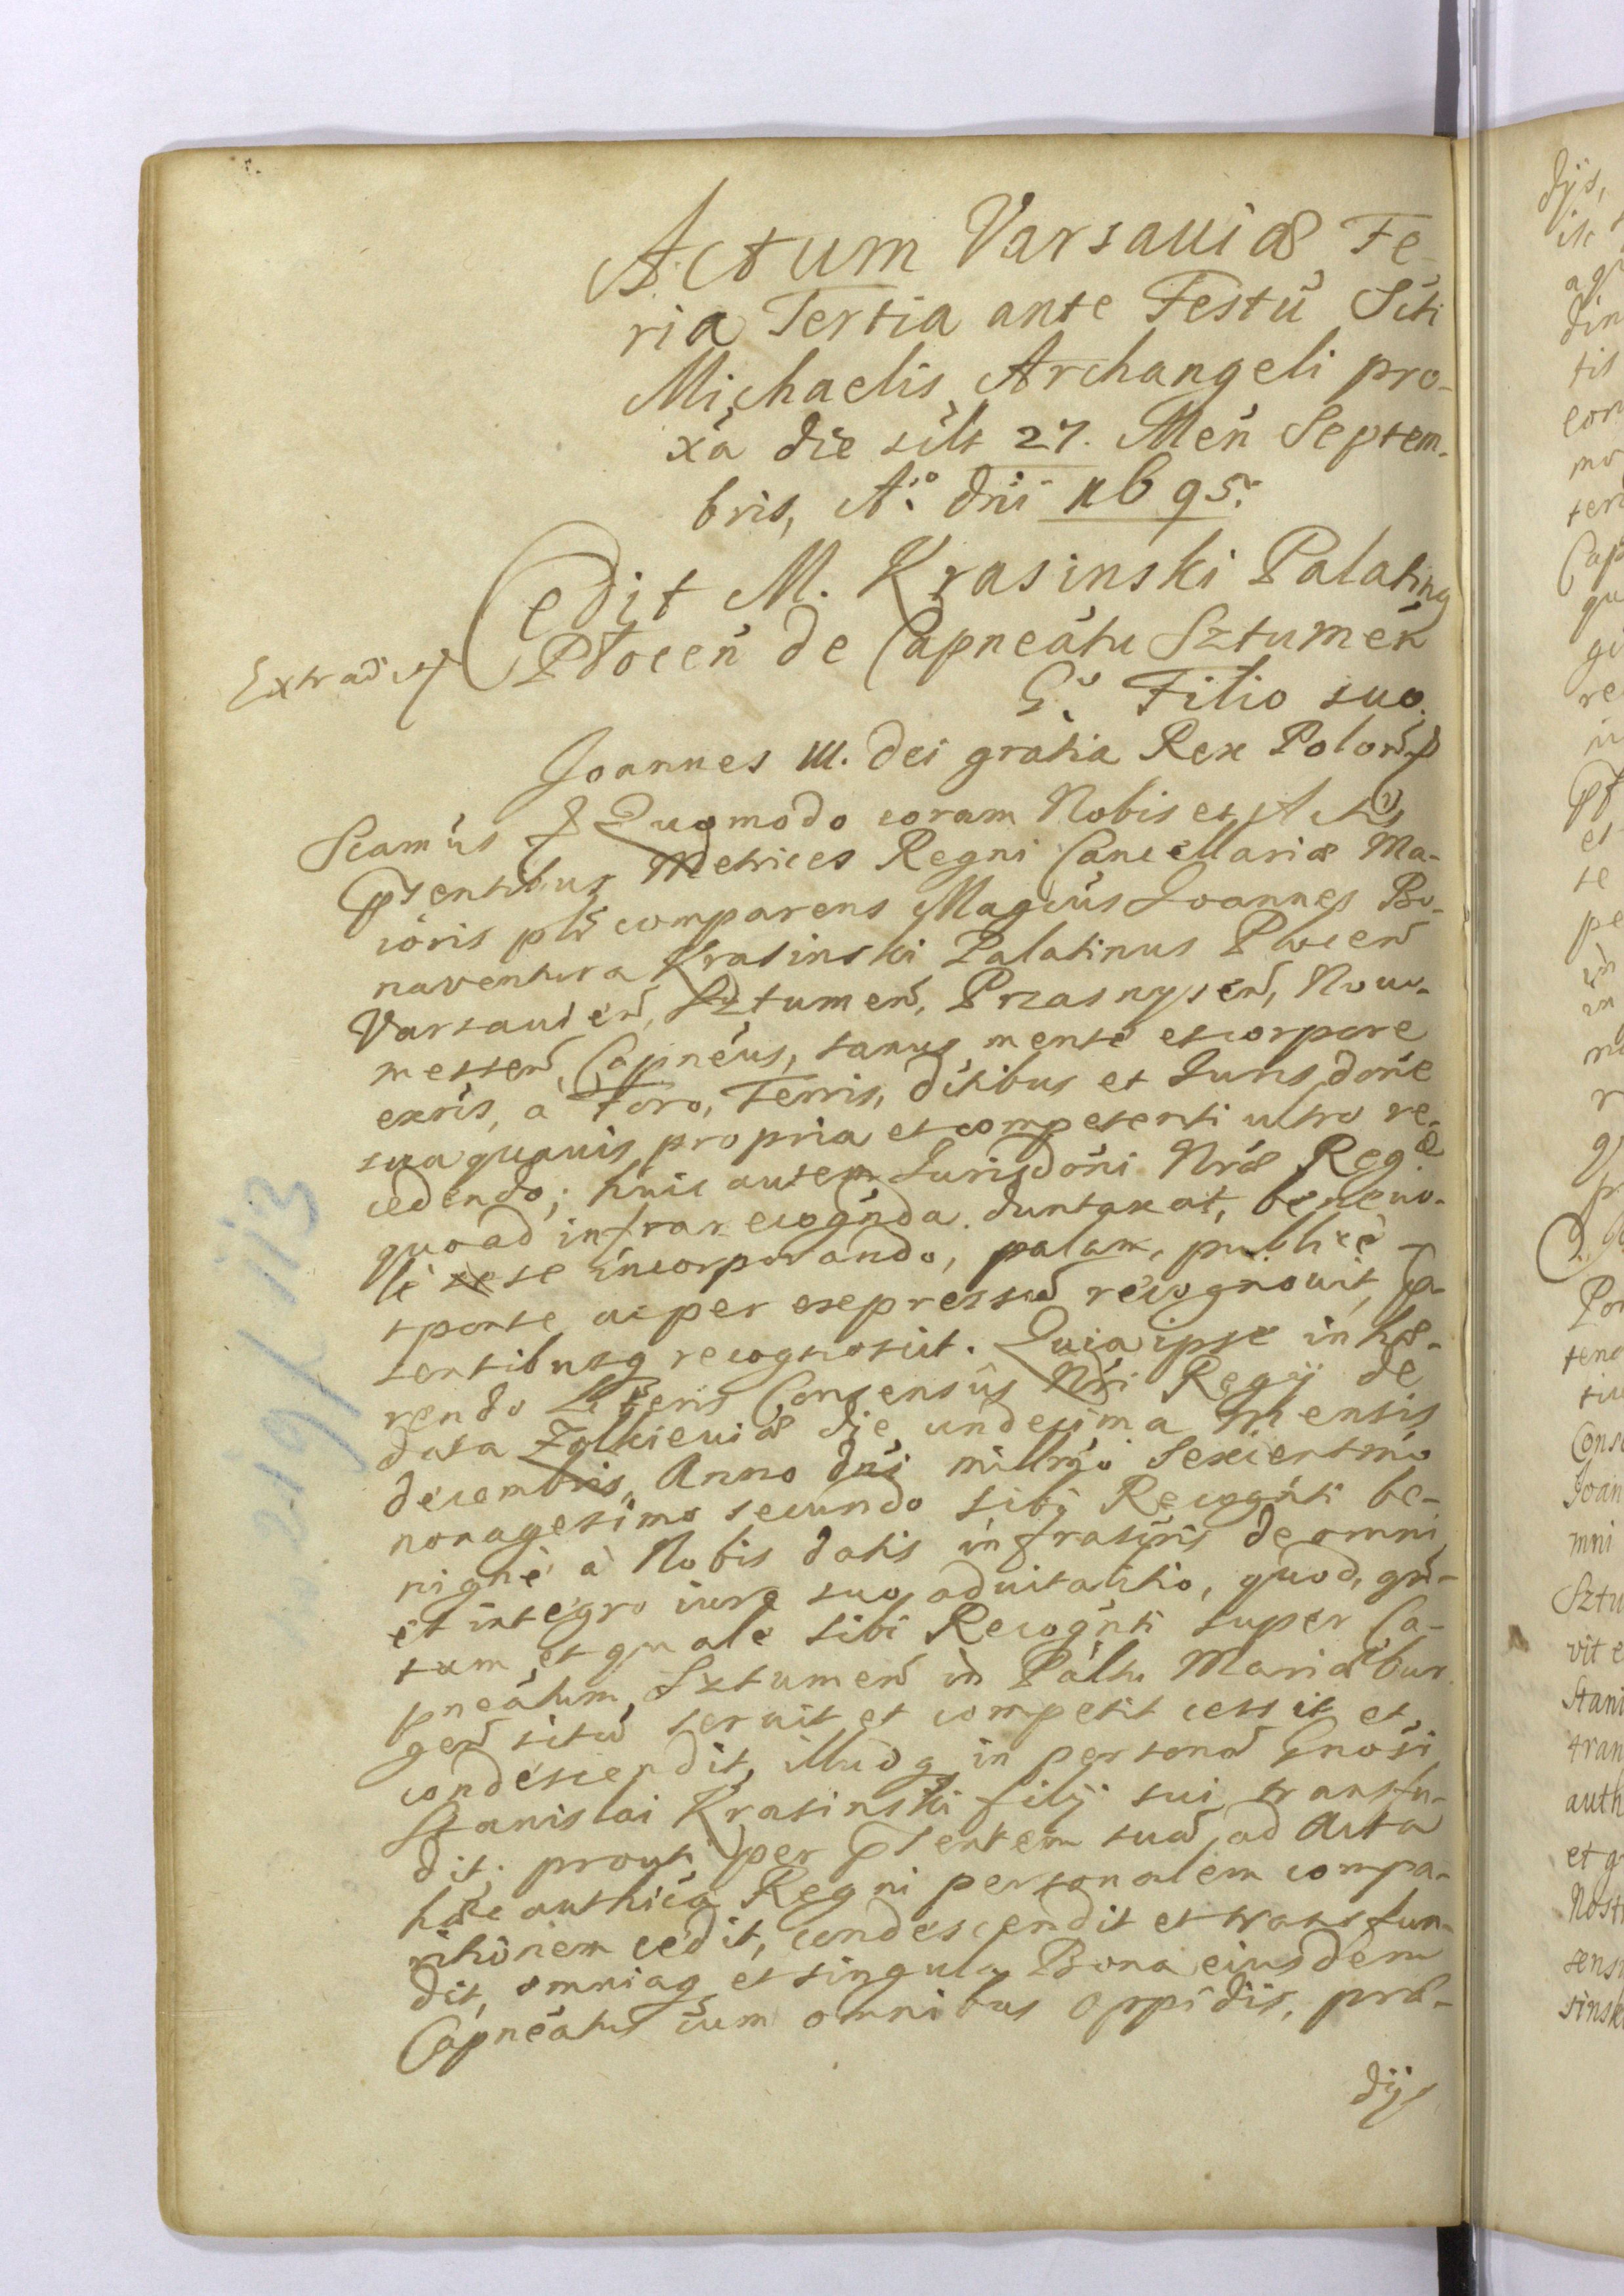 Actum Varsaviæ Fe-
ria Tertia ante Festū Scti
Michaelis Archangeli pro-
xa die scilt 27. Men Septem-
bris, Aº dni 1695.
Cedit M. Krasinski Palatinꝰ
Plocen̄ de Capneatu Sztumen̄
Extradit
G. Filio suo.
Joannes III. Dei gratia Rex Polon̄
Seamus Quomodo coram Nobis et Actis
pñsentibus Metrices Regni Cancellariæ Ma-
ioris plr comparens Magcus Joannes Bo-
naventura Krasinski Palatinus Plocen̄
Varsavien̄, Sztumen̄, Przasnysen̄, Nouo-
messen̄ Capneus, sanus mente et corpore
exns, à Foro, Terris, dictibus et Jurisdone
sua quavis propria et competenti ultro re-
cedendo; huic autem Jurisdoni Nræ Regæ
quoad infra recognda duntaxat, beneuo-
lè sese incorporando, palam, publicè
sponte ac per expressū recognouit, p-
sentibusq recognoscit. Quia ipse inhæ-
rendo Literis Consensûs Nri Regij de
data Zolkieuiæ die undecima Mensis
Decembris, Anno dni millmo Sexcentmo
nonagesimo secundo sibi Recognti be-
nignè à Nobis datis infrascris de omni
et integro iure suo aduitalitio, quod, qn-
tum et quale sibi Recognti super Ca-
pneatum Sztumen̄ in Paltu Mariæbur
gen̄ sitū seruit et competit cessit et
condescendit, illudq in personā Gnosi
Stanislai Krasinski filij sui transfu-
dit; prout per pñsentem suā ad Acta
hæc authica Regni personalem compa-
ritionem cedit, condescendit et transfun-
dit, omniaq et singula Bona eiusdem
Capneatus cum omnibus oppidis, præ-
dijs